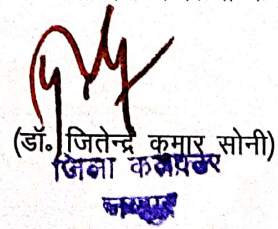 (डॉ. जितेन्द्र कुमार सोनी)
जिला कलक्टर